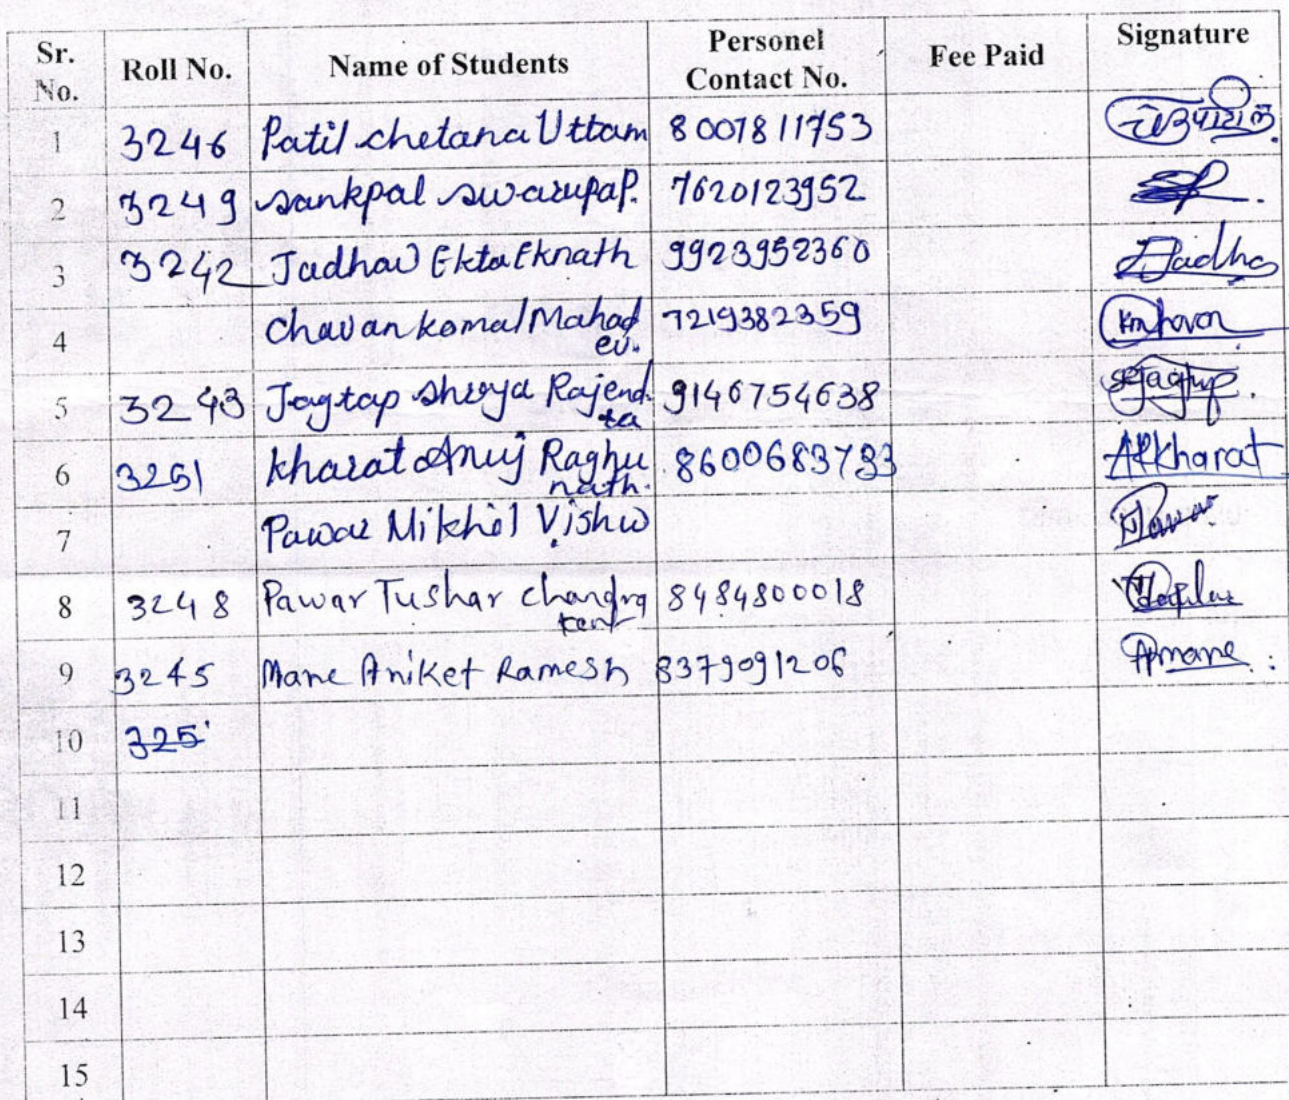 Sr. No. Roll No. Name of Students Personel Contact No. Fee Paid Signature
1 3246 Patil chetana Uttam 8007811753
2 3249 sankpal swarupa P. 7620123952
3 3242 Jadhav Ekta Eknath 9923952360 Jadhav
4 chavan komal Mahadev. 7219382359
5 3243 Jagtap Shreya Rajendra 9146754638
6 3251 kharat Anuj Raghunath. 8600683793 ARkharat
7 Pawar Mikhil Vishw
8 3248 Pawar Tushar chandrakant 8484800018
9 3245 Mane Aniket Ramesh 8379091206 ARmane
10 325
11
12
13
14
15